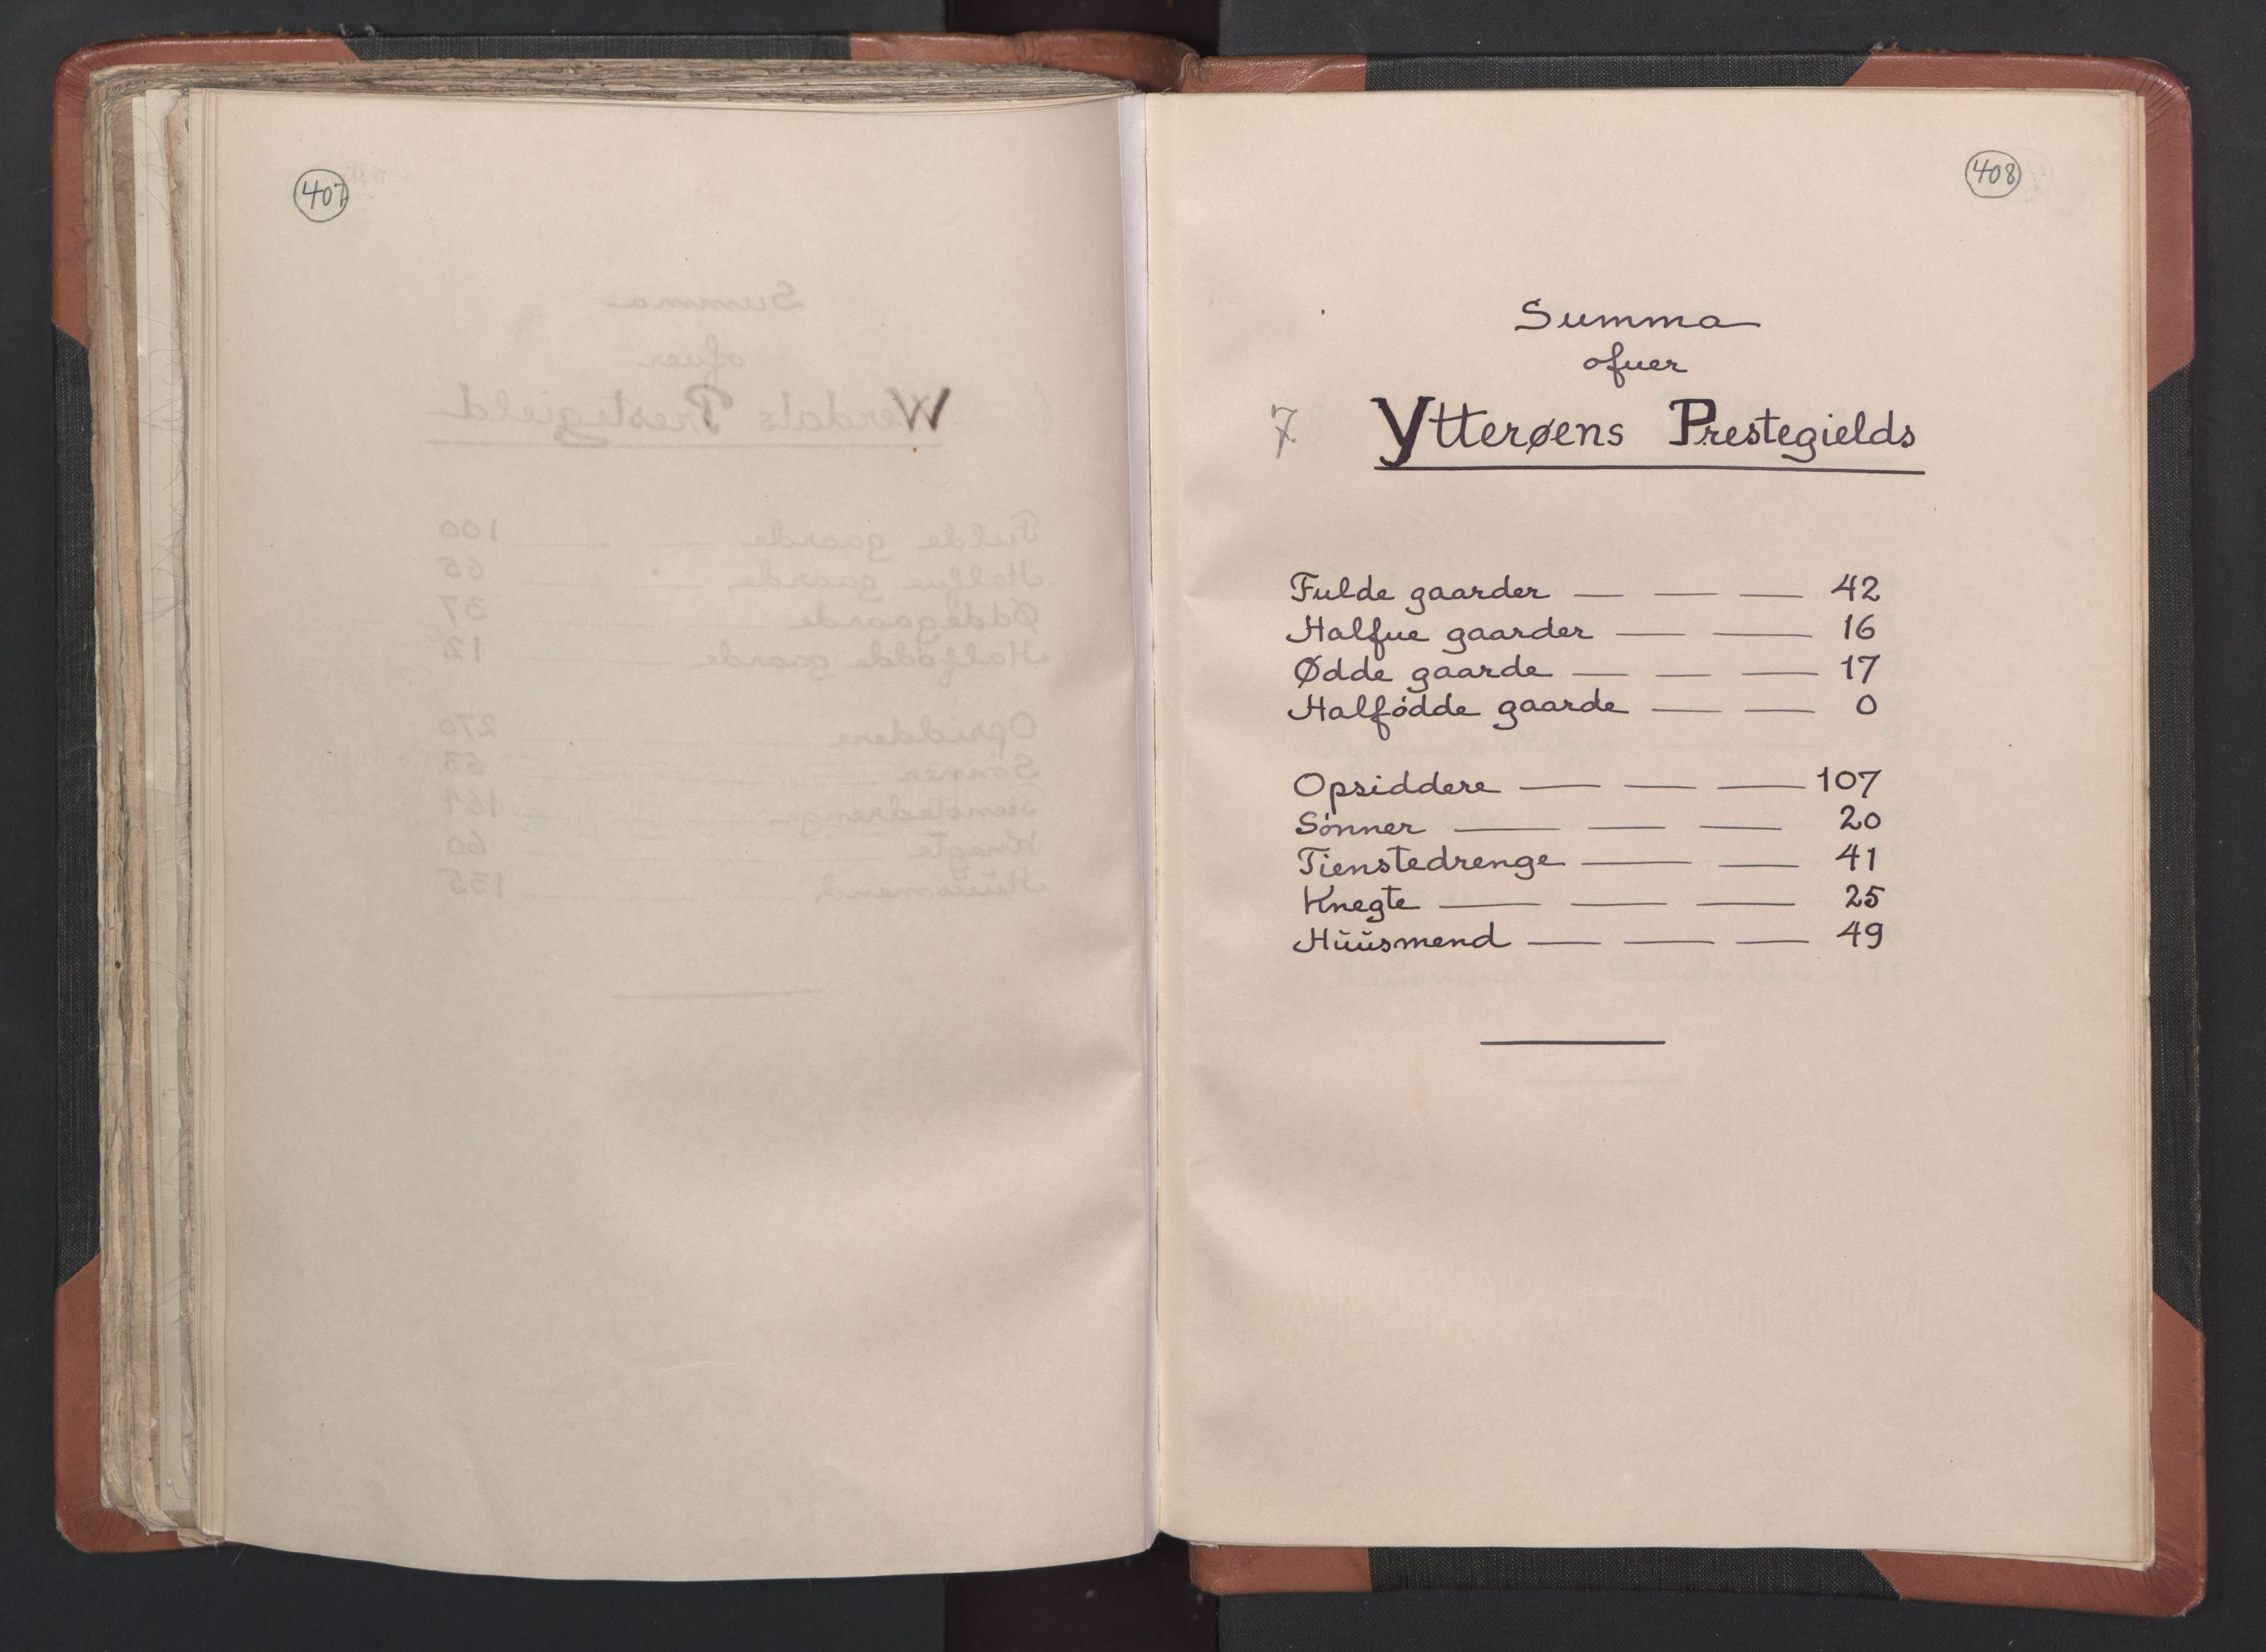 407
408
Summa
ofuer
7. Ytterøens Prestegields
Fulde gaarder — — — 42
Halfue gaarder — — 16
Ødde gaarde — — — 17
Halfödde gaarde — — 0
Opsiddere — — — 107
Sönner — — — 20
Tienstedrenge — — 41
Knegte — — — 25
Hüüsmend — — — 49